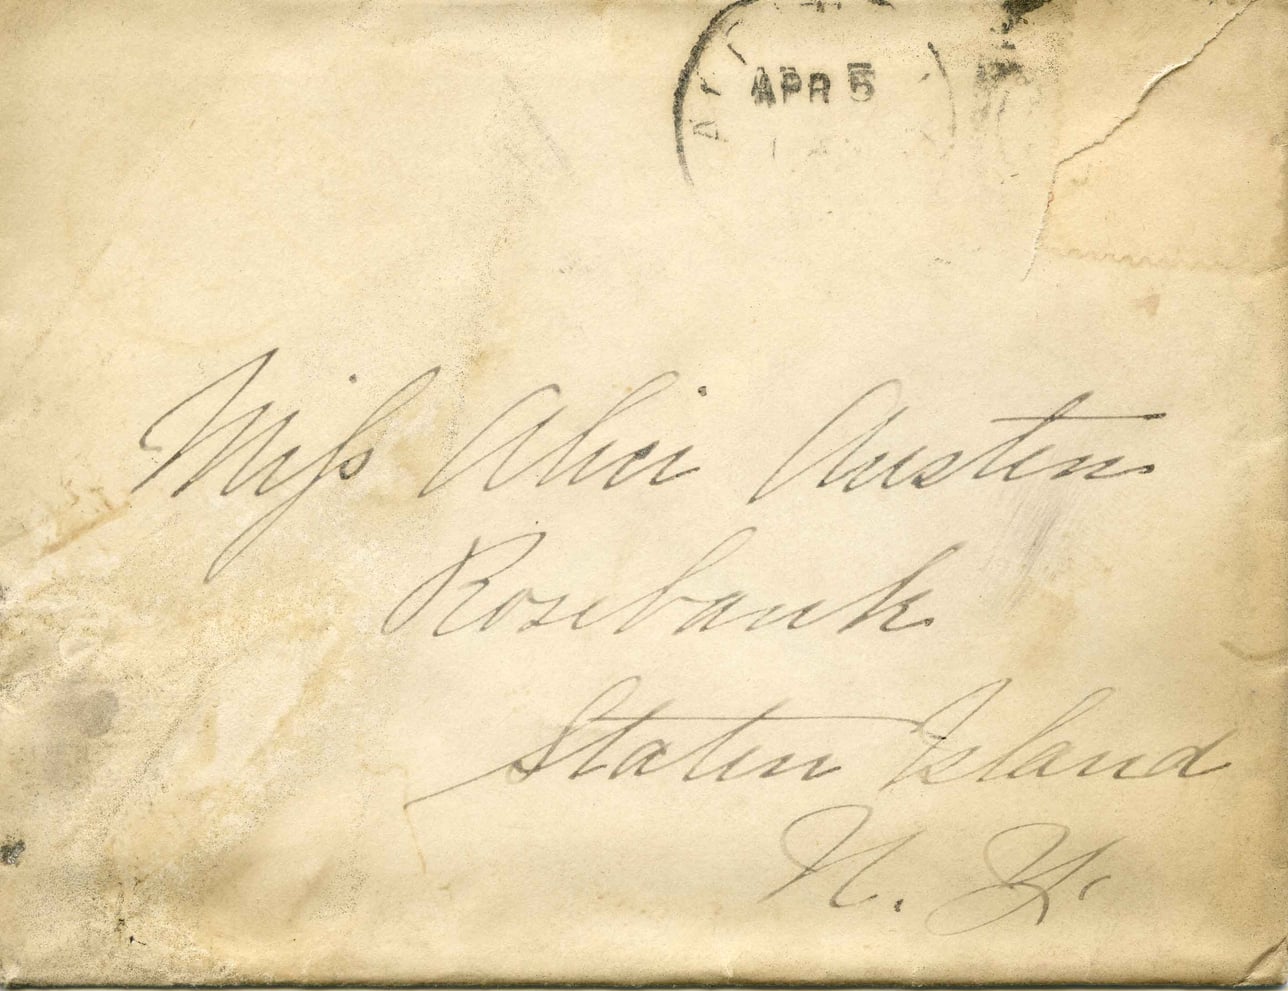 APR 5
Miss Alice Austen
Rosebank
Staten Island
N. Y.